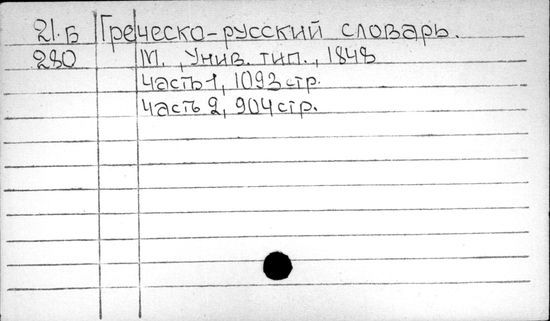 21.Б Греческо-русский словарь.
280 М., Унив. тип., 1848
часть 1, 1093 стр.
часть 2, 904 стр.